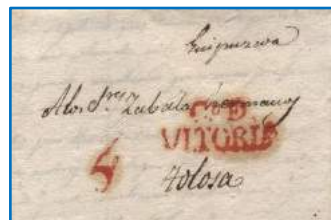 Guipuzcoa
A los Sres Zabala hermanos
Cn. D
VITORIA
Tolosa